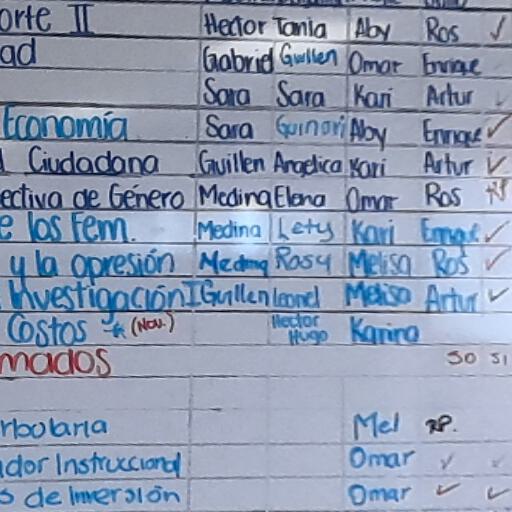 orte II Hector Tania Aby Ros ✓
ad Gabriel Guillen Omar Enrique
Sara Sara Kari Artur
Economía Sara Guinori Aby Enrique ✓
Ciudadana Guillen Angelica Kari Artur ✓
ectiva de Género Medina Elena Omar Ros
e los Fem. Medina Lety Kari Enrique ✓
y la opresión Medina Rosy Melisa Ros ✓
Investigación I Guillen Leonel Melisa Artur ✓
Costos * (Nov.) Hector Hugo Karina
mados SO SI
rbolaria Mel RP.
ador Instruccional Omar ✓ ✓
s de Inversión Omar ✓ ✓